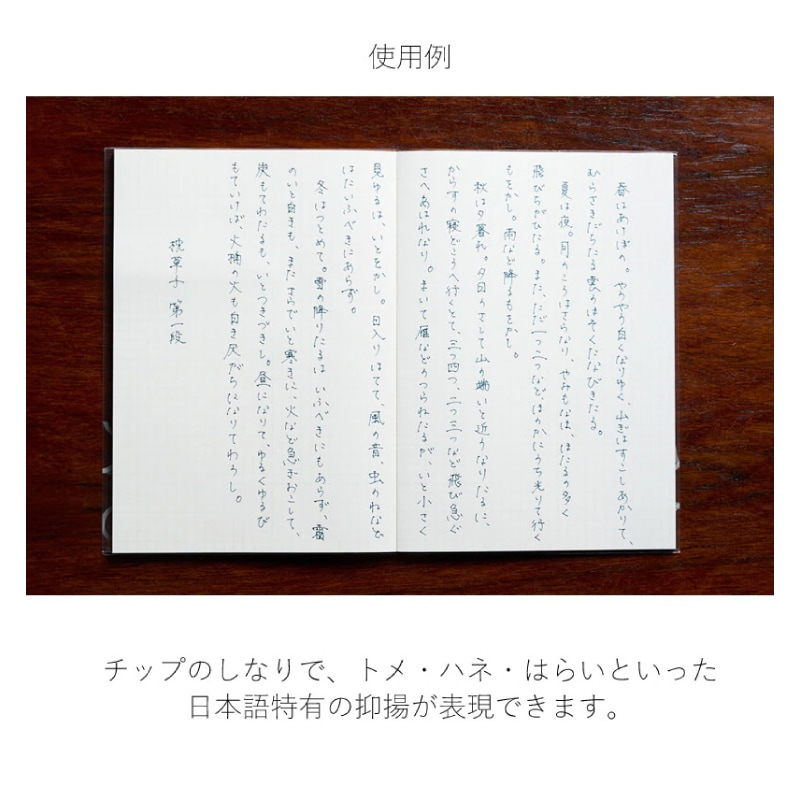 使用例
春はあけぼの。やうやう白くなりゆく、山ぎはすこしあかりて、
むらさきだちたる雲のほそくたなびきたる。
夏は夜。月のころはさらなり、やみもなほ、ほたるの多く
飛びちがひたる。また、ただ一つ二つなど、ほのかにうち光りて行く
もをかし。雨など降るもをかし。
秋は夕暮れ。夕日のさして山の端いと近うなりたるに、
からすの寝どころへ行くとて、三つ四つ、二つ三つなど飛び急ぐ
さへあはれなり。まいて雁などのつらねたるが、いと小さく
見ゆるは、いとをかし。日入りはてて、風の音、虫のねなど
はたいふべきにあらず。
冬はつとめて。雪の降りたるは いふべきにもあらず、霜
のいと白きも、また さらでいと寒きに、火など急ぎおこして、
炭もてわたるも、いとつきづきし。昼になりて、ゆるくゆるび
もていけば、火桶の火も白き灰がちになりてわろし。
枕草子 第一段
チップのしなりで、トメ・ハネ・はらいといった
日本語特有の抑揚が表現できます。